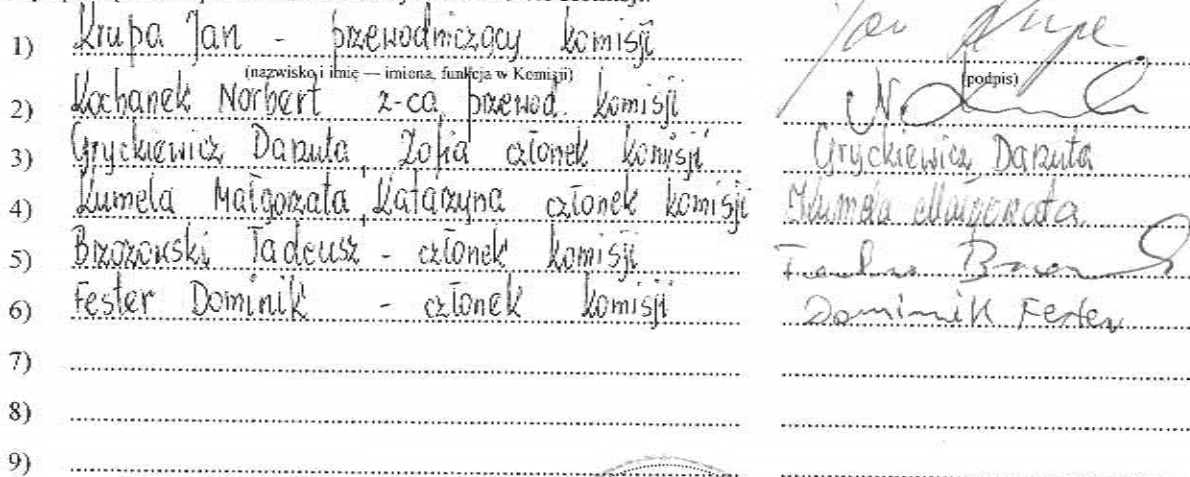 1) Krupa Jan - przewodniczący komisji
(nazwisko i imię — imiona, funkcja w Komisji) (podpis)
2) Kochanek Norbert z-ca przewod. komisji
3) Gryckiewicz Danuta, Zofia członek komisji Gryckiewicz Danuta
4) Kumela Małgorzata, Katarzyna członek komisji Kumela Małgorzata
5) Brzozowski Tadeusz - członek komisji
6) Fester Dominik - członek komisji Dominik Fester
7)
8)
9)